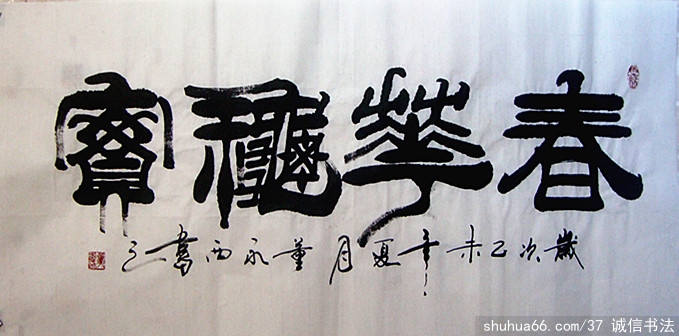 春華龝實
歲次乙未年夏月董永西書之
shuhua66.com/37 诚信书法